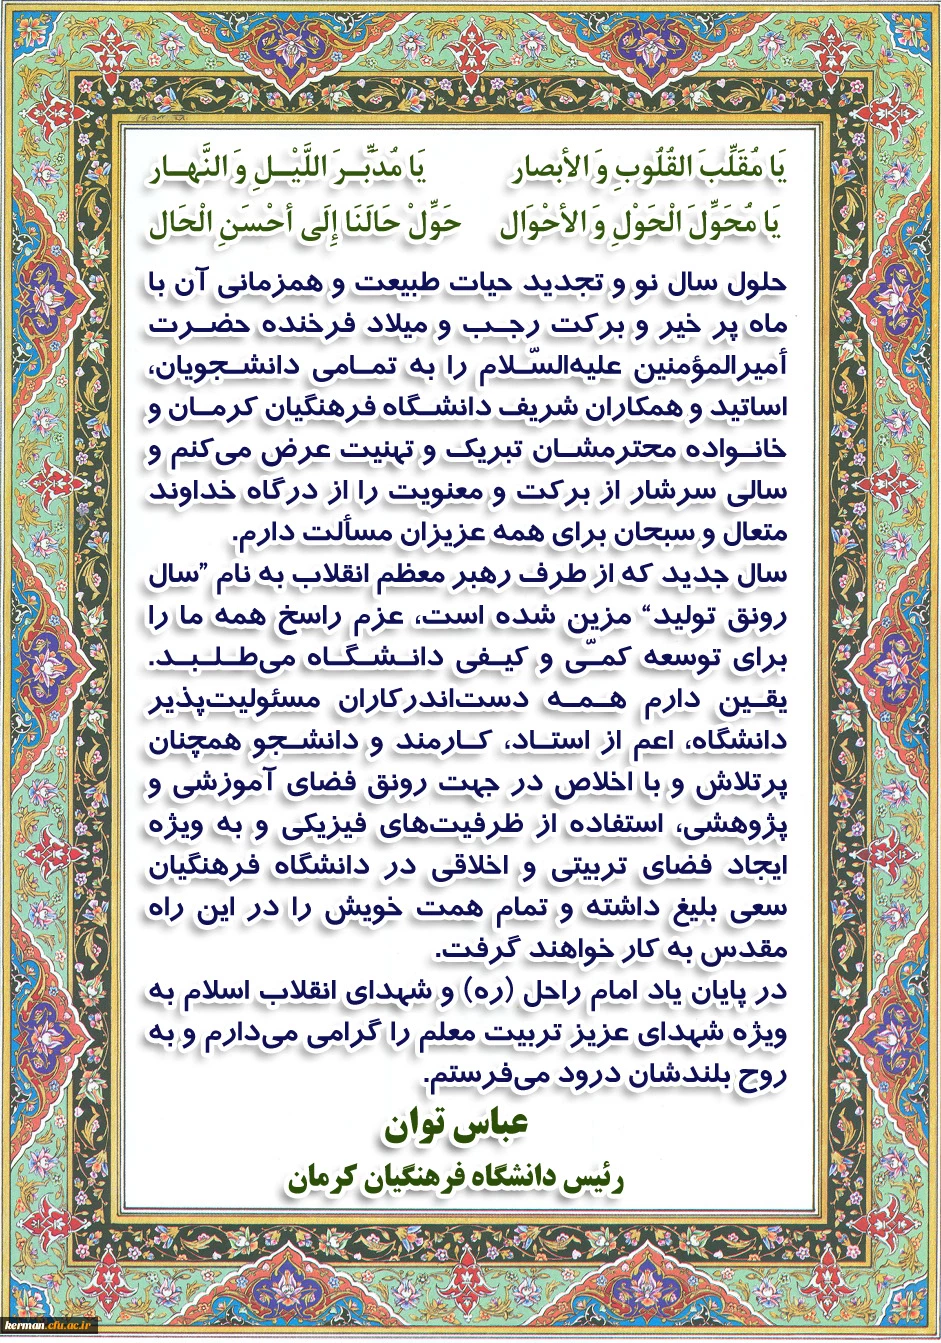 يَا مُقَلِّبَ القُلُوبِ وَ الأبصار يَا مُدَبِّــرَ اللَّيْــلِ وَ النَّهــار
يَا مُحَوِّلَ الْحَوْلِ وَ الأحْوَال حَوِّلْ حَالَنَا إِلَى أحْسَنِ الْحَال
حلول سال نو و تجدید حیات طبیعت و همزمانی آن با
ماه پر خیر و برکت رجـب و میلاد فرخنده حضـرت
أمیرالمؤمنین علیه‌السّـلام را به تمـامی دانشـجویان،
اساتید و همکاران شریف دانشـگاه فرهنگیان کرمـان و
خانـواده محترمشـان تبریک و تهنیت عرض می‌کنم و
سالی سرشار از برکت و معنویت را از درگاه خداوند
متعال و سبحان برای همه عزیزان مسألت دارم.
سال جدید که از طرف رهبر معظم انقلاب به نام ”سال
رونق تولید“ مزین شده است، عزم راسخ همه ما را
برای توسعه کمـّی و کیـفی دانـشـگـاه می‌طـلـبـد.
یقـین دارم هـمـه دست‌اندرکاران مسئولیت‌پذیر
دانشگاه، اعم از استـاد، کـارمند و دانشـجو همچنان
پرتلاش و با اخلاص در جهت رونق فضای آموزشی و
پژوهشی، استفاده از ظرفیت‌های فیزیکی و به ویژه
ایجاد فضای تربیتی و اخلاقی در دانشگاه فرهنگیان
سعی بلیغ داشته و تمام همت خویش را در این راه
مقدس به کار خواهند گرفت.
در پایان یاد امام راحل (ره) و شهدای انقلاب اسلام به
ویژه شهدای عزیز تربیت معلم را گرامی می‌دارم و به
روح بلندشان درود می‌فرستم.
عباس توان
رئیس دانشگاه فرهنگیان کرمان
kerman.cfu.ac.ir